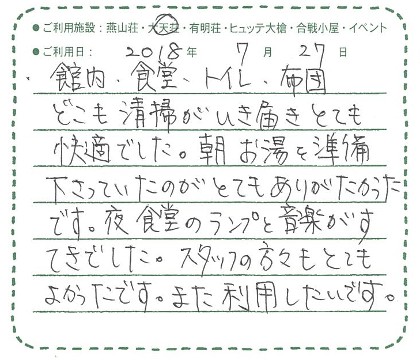 ● ご利用施設：燕山荘・大天荘・有明荘・ヒュッテ大槍・合戦小屋・イベント
● ご利用日： 2018 年 7 月 27 日
館内・食堂・トイレ・布団
どこも清掃がいき届きとても
快適でした。朝お湯を準備
下さっていたのがとてもありがたかった
です。夜食堂のランプと音楽がす
てきでした。スタッフの方々もとても
よかったです。また利用したいです。